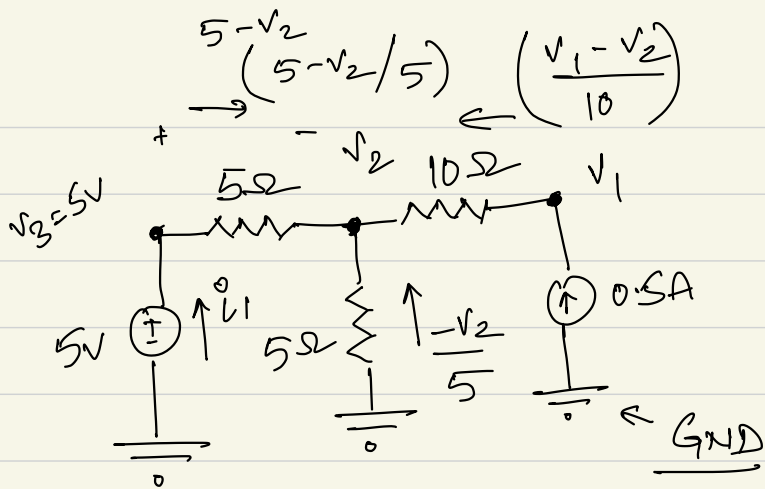 5-V2
(5-V2/5)
(V1-V2/10)
+
-
V2
V3=5V
5Ω
10Ω
V1
5V
i1
5Ω
-V2/5
0.5A
GND
0
0
0